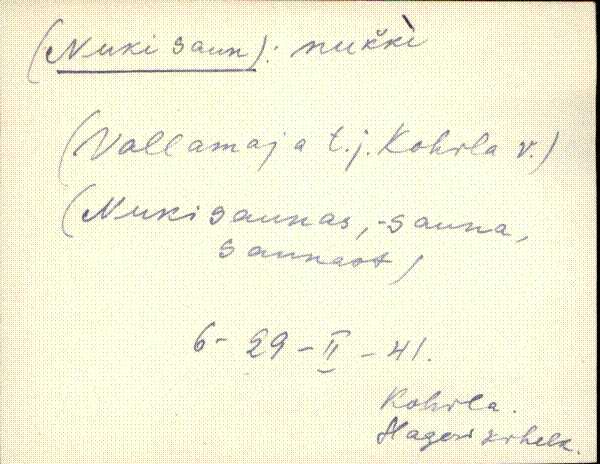 (Nuki saun): nukkì
(Vallamaja t.j. Kohila v.)
(Nukisaunas, -sauna,
saunast)
6-29-II-41.
Kohila.
Hageri kihelk.